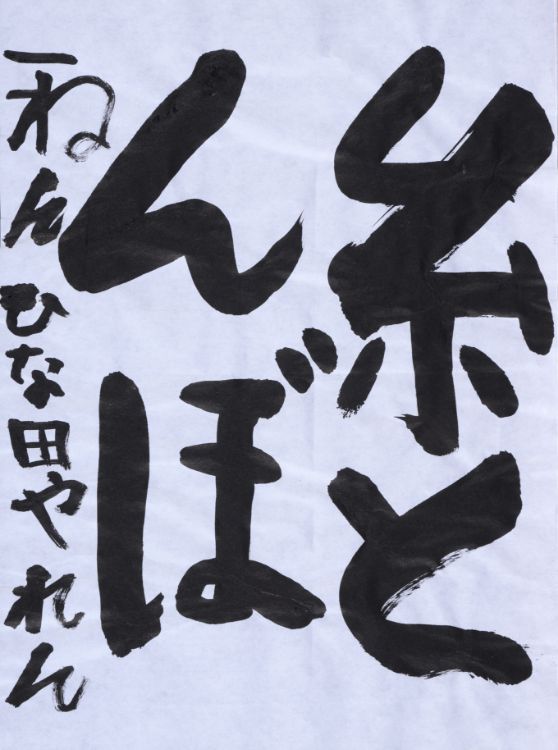 糸と
んぼ
一ねんひな田やれん